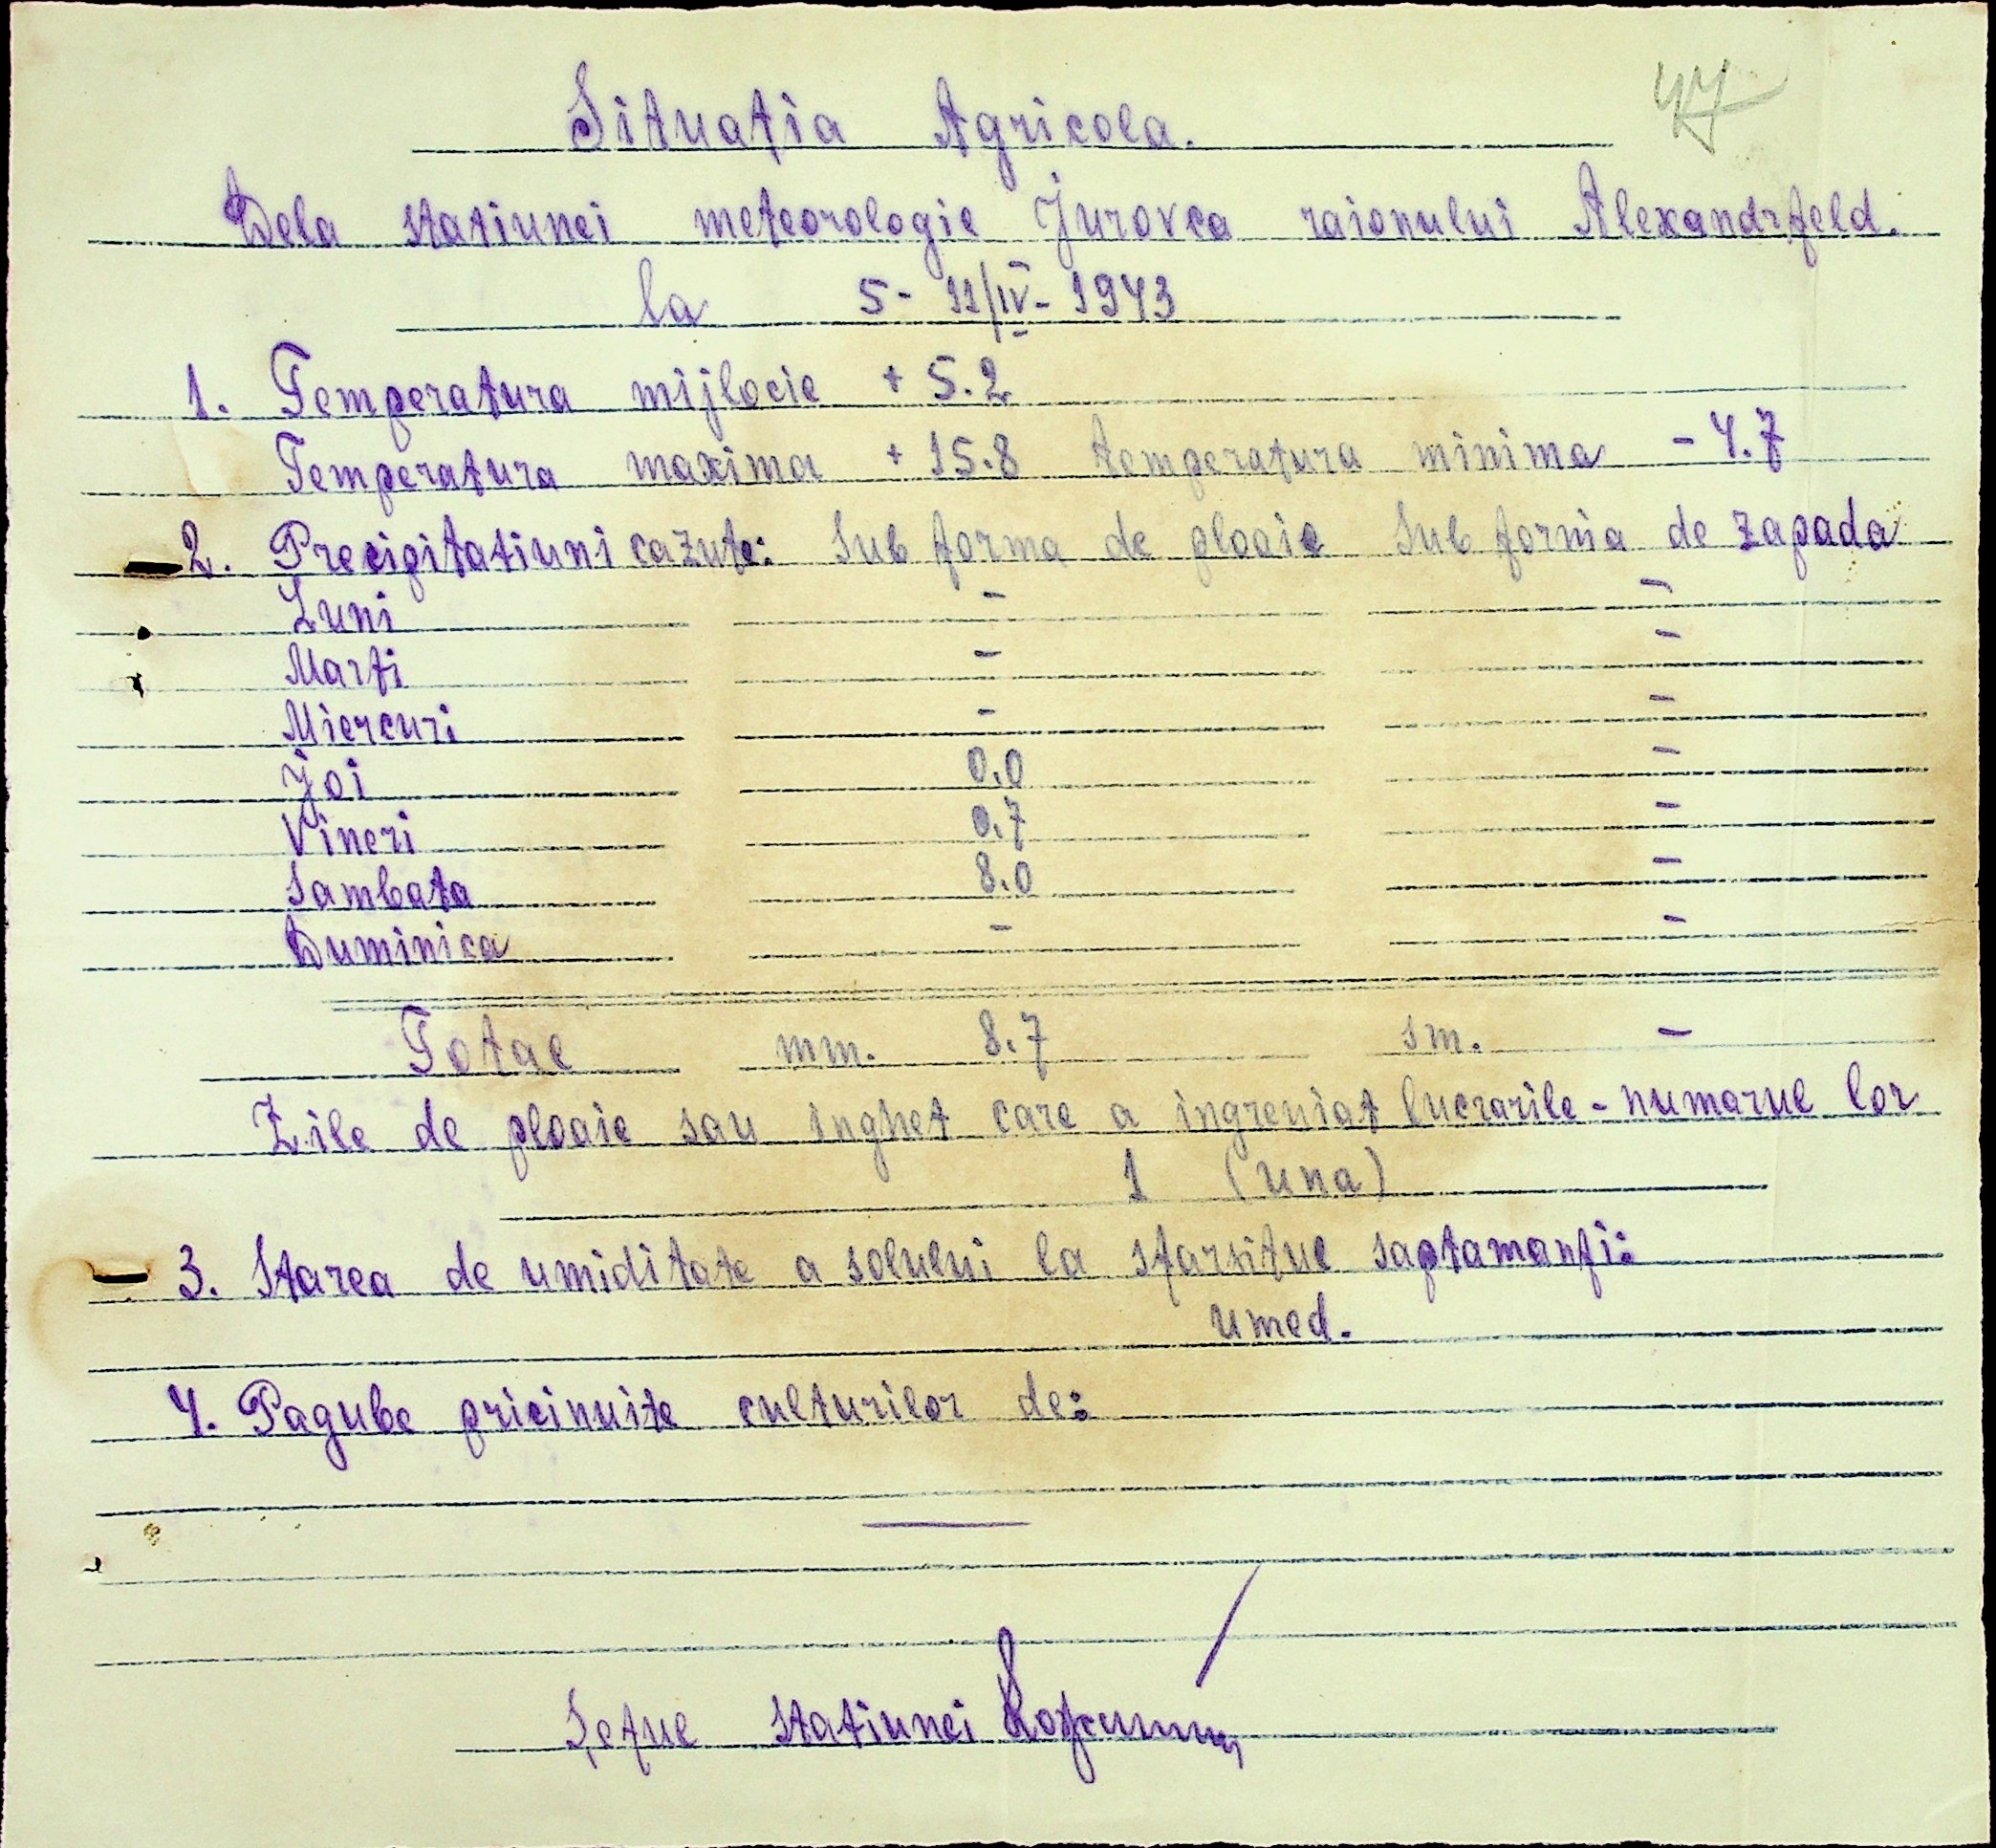 47
Situatia Agricola.
Dela statiunei meteorologie Jurovca raionului Alexandrfeld.
la 5-11/IV-1943
1. Temperatura mijlocie + 5.2
Temperatura maxima + 15.8 temperatura minima - 4.7
2. Precipitatiuni cazute: Sub forma de ploaie Sub forma de zapada
Luni - -
Marti - -
Miercuri - -
Joi 0.0 -
Vineri 0.7 -
Sambata 8.0 -
Duminica - -
Total mm. 8.7 sm. -
Zile de ploaie sau inghet care a ingreuiat lucrarile - numarul lor
1 (una)
3. Starea de umiditate a solului la sfarsitul saptamanfi:
umed.
4. Pagube pricinuite culturilor de:
Șeful statiunei